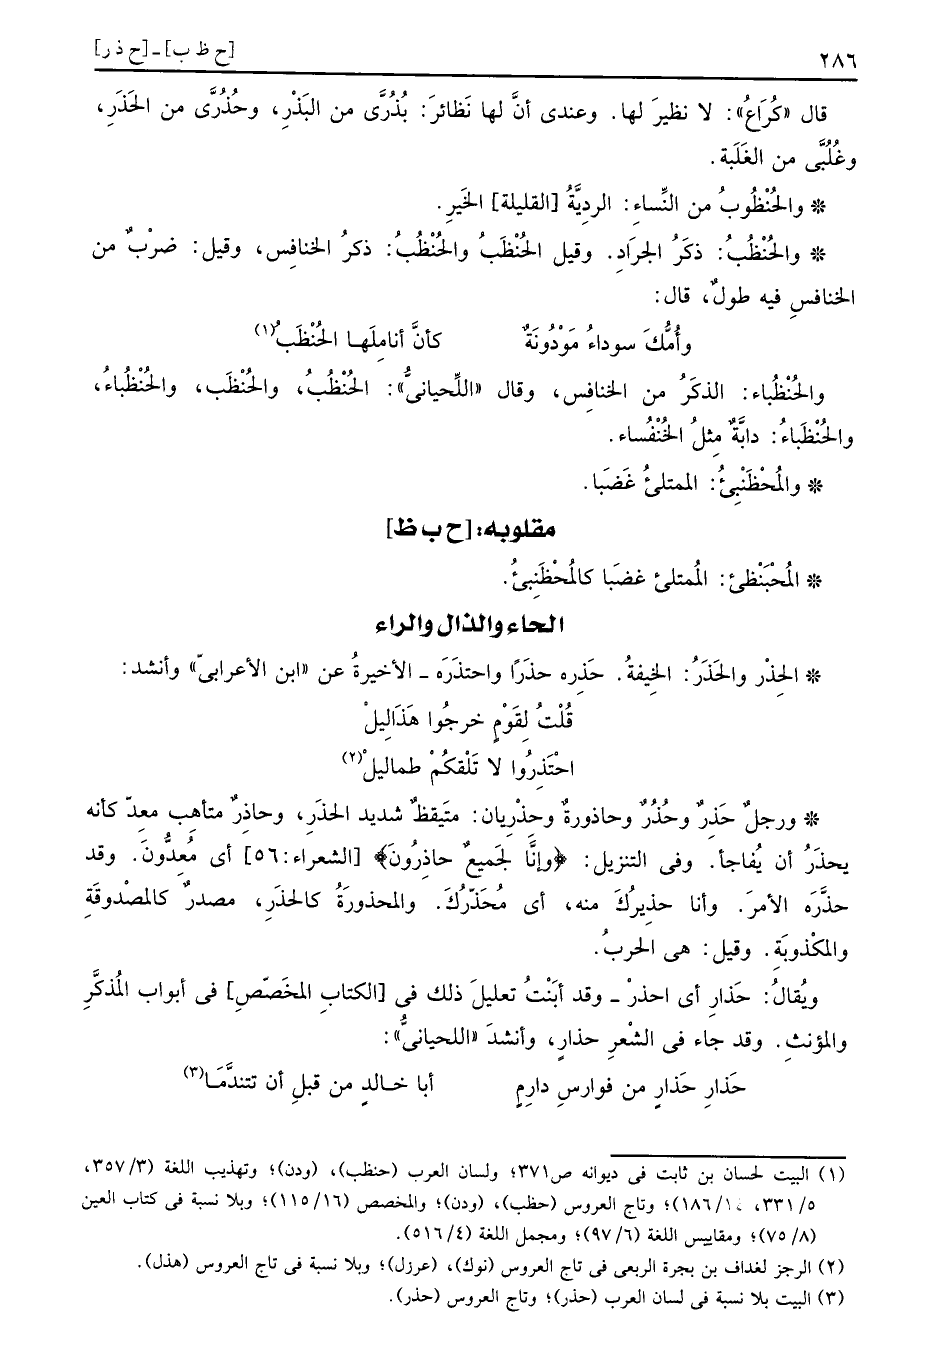 ٢٨٦
[ح ظ ب] ـ [ح ذ ر]
قال «كُرَاعُ»: لا نظيرَ لها. وعندى أنَّ لها نَظائرَ: بُذُرَّى من البَذْرِ، وحُذُرَّى من الحَذَرِ،
وغُلُبَّى من الغَلَبة.
❊ والحُنْظُوبُ من النِّساءِ: الرديَّةُ [القليلة] الخَيرِ.
❊ والحُنْظُبُ: ذكَرُ الجرَادِ. وقيل الحُنْظَبُ والحُنْظُبُ: ذكرُ الخنافِس، وقيل: ضرْبٌ من
الخنافسِ فيه طولٌ، قال:
وأُمُّكَ سوداءُ مَوْدُونَةٌ كأنَّ أنامِلَها الحُنْظَبُ(١)
والحُنْظُباء: الذكَرُ من الخنافِس، وقال «اللِّحيانىُّ»: الحُنْظُبُ، والحُنْظَب، والحُنْظُباءُ،
والحُنْظَباءُ: دابَّةٌ مثلُ الخُنْفُساء.
❊ والمُحْظَنْبِئُ: الممتلئُ غَضَبَا.
مقلوبه: [ح ب ظ]
❊ المُحْبَنْظئ: المُمتلئ غضبَا كالمُحْظَنبئُ.
الحاء والذال والراء
❊ الحِذْر والحَذَرُ: الخيفةُ. حَذِره حذَرًا واحتذَرَه ـ الأخيرةُ عن «ابن الأعرابىّ» وأنشد:
قُلْتُ لِقَوْمٍ خرجُوا هَذَالِيلْ
احْتَذِرُوا لا تَلْقكُمْ طماليلْ(٢)
❊ ورجلٌ حَذِرٌ وحُذُرٌ وحاذورةٌ وحذْرِيان: متَيقظٌ شديد الحذَرِ، وحاذِرٌ متأهب معدّ كأنه
يحذَرُ أن يُفاجأ. وفى التنزيل: ﴿وإنَّا لَجَميعٌ حاذِرُونَ﴾ [الشعراء:٥٦] أى مُعِدُّونَ. وقد
حذَّرَه الأمرَ. وأنا حذيرُكَ منه، أى مُحَذّرُكَ. والمحذورةُ كالحذَرِ، مصدرٌ كالمصْدوقَةِ
والمكْذوبَةِ. وقيل: هى الحربُ.
ويُقالُ: حَذارِ أى احذرْ ـ وقد أبَنْتُ تعليلَ ذلك فى [الكتابِ المخَصّصِ] فى أبواب المُذكَّرِ
والمؤنثِ. وقد جاء فى الشعْرِ حذارٍ، وأنشدَ «اللحيانىُّ»:
حَذارِ حَذارٍ من فوارسِ دارِمٍ أبا خالدٍ من قبلِ أن تتندَّمَا(٣)
(١) البيت لحسان بن ثابت فى ديوانه ص٣٧١؛ ولسان العرب (حنظب)، (ودن)؛ وتهذيب اللغة (٣٥٧/٣،
٣٣١/٥، ١٨٦/١٤)؛ وتاج العروس (حظب)، (ودن)؛ والمخصص (١١٥/١٦)؛ وبلا نسبة فى كتاب العين
(٧٥/٨)؛ ومقاييس اللغة (٩٧/٦)؛ ومجمل اللغة (٥١٦/٤).
(٢) الرجز لغداف بن بجرة الربعى فى تاج العروس (نوك)، (عرزل)؛ وبلا نسبة فى تاج العروس (هذل).
(٣) البيت بلا نسبة فى لسان العرب (حذر)؛ وتاج العروس (حذر).